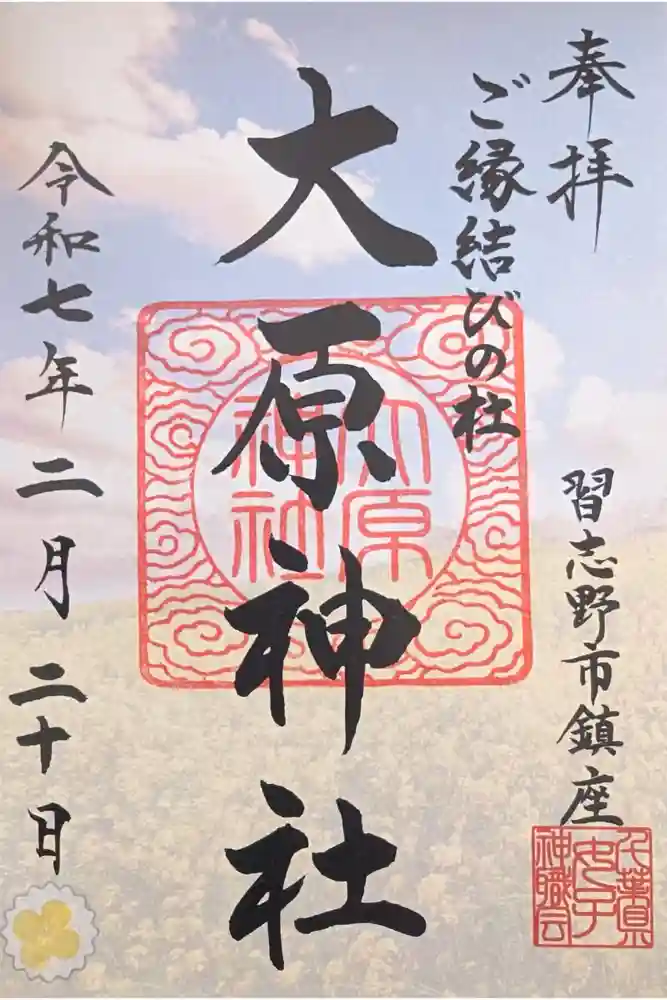 奉拝
ご縁結びの杜
習志野市鎮座
大原神社
大原神社
令和七年二月二十日
千葉県
女子
神職会